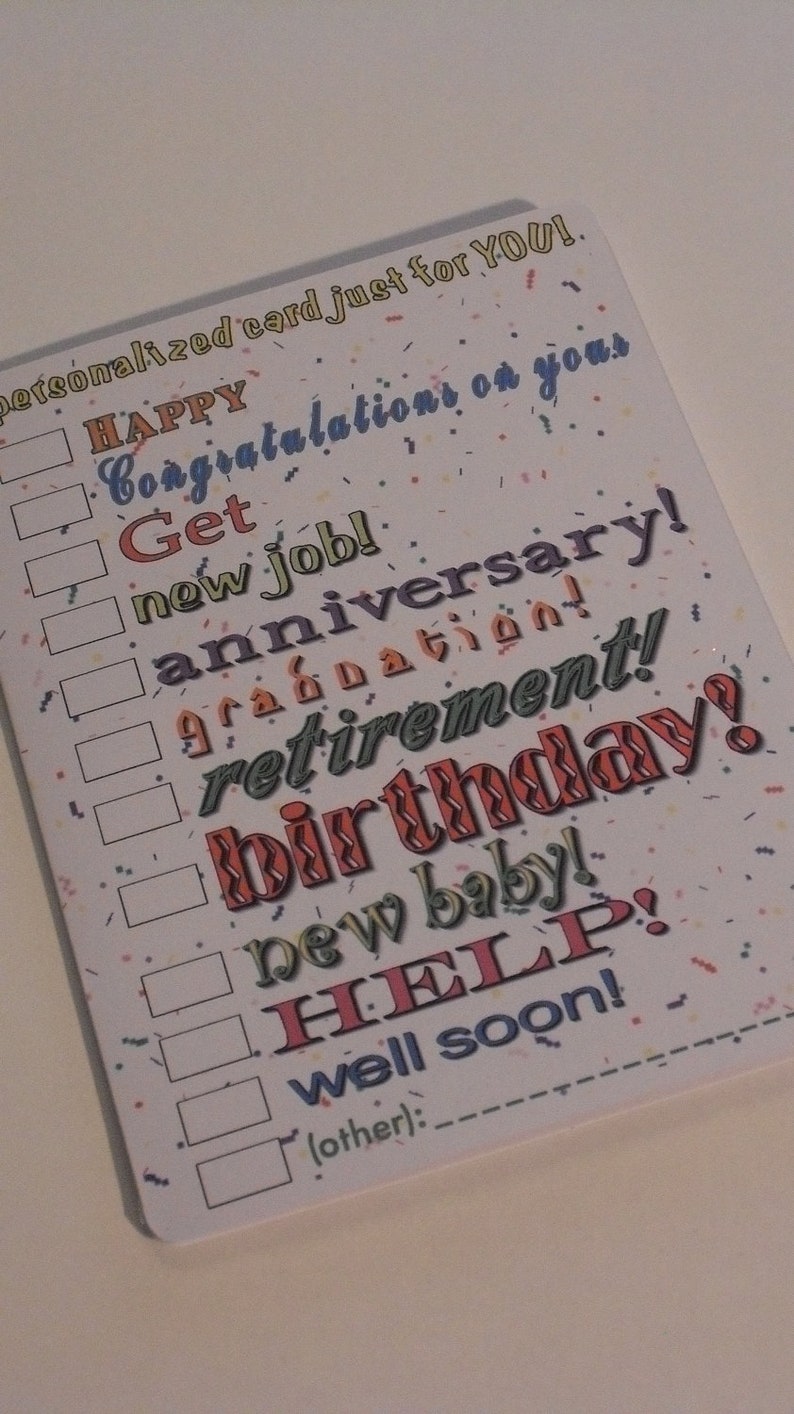 personalized card just for YOU!
HAPPY
Congratulations on your
Get
new job!
anniversary!
graduation!
retirement!
birthday!
new baby!
HELP!
well soon!
(other): _ _ _ _ _ _ _ _ _ _ _ _ _ _ _